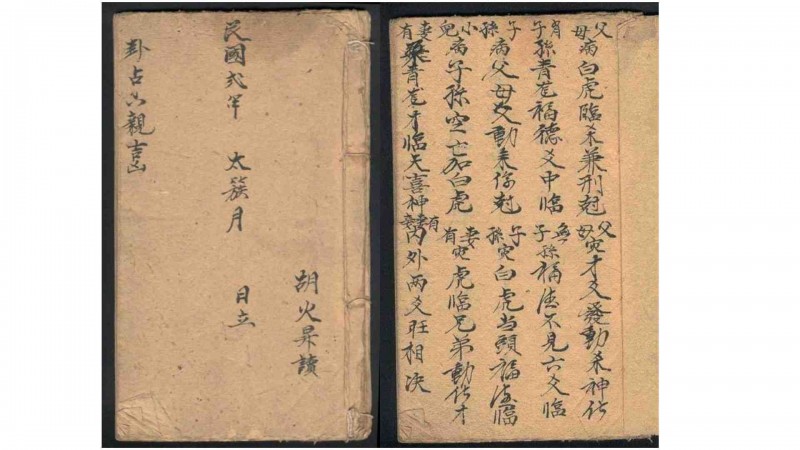 胡火昇讀
民國弍年 太簇月 日立
卦占六親吉凶
父母病白虎臨杀兼刑尅 父母灾才爻發動杀神化
有子孫青龍福德爻中臨 無子孫福德不見六爻臨
子孫病父母爻動來傷尅 子孫灾白虎当頭福德臨
小兒病子孫空亡加白虎 妻有灾虎臨兄弟動化才
有妻妾青龍才臨天喜神 有妻妾内外两爻旺相决